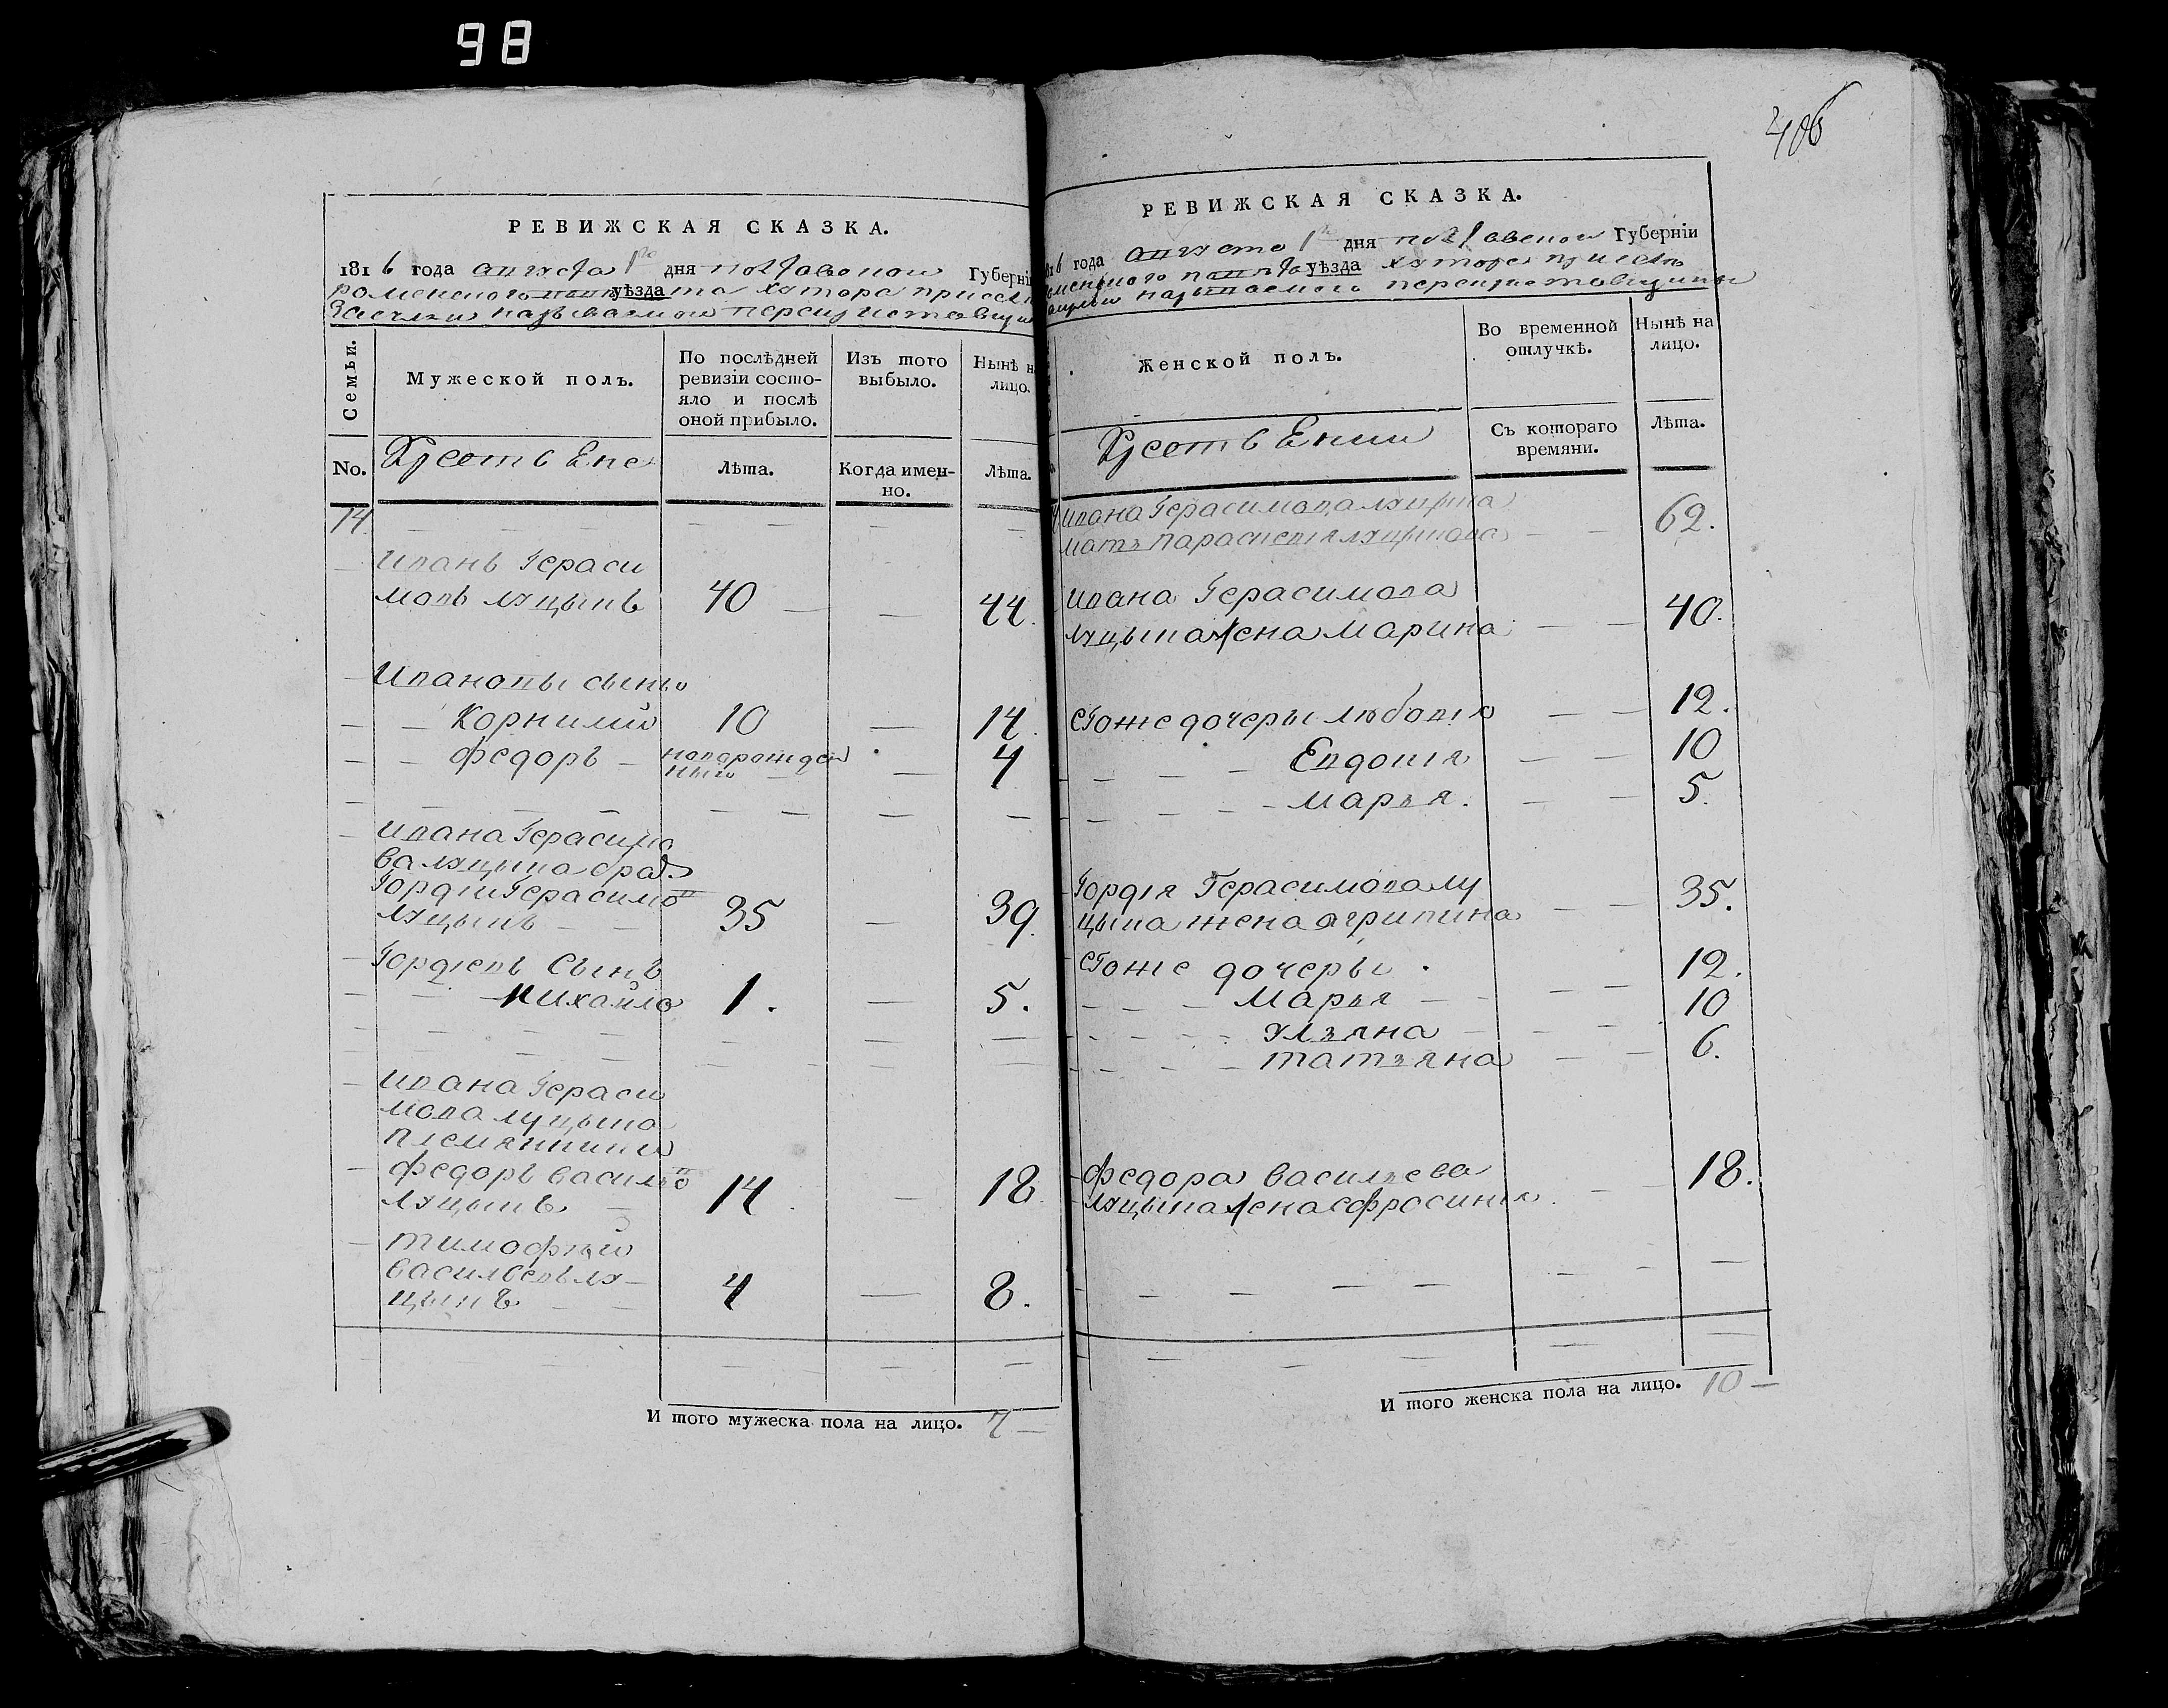 98
406
РЕВИЖСКАЯ СКАЗКА.
1816 года августа 1го дня полтавской Губерніи
роменского повѣта уѣзда хутора
называемого
Семьи.
Мужеской полъ.
По послѣдней ревизіи состо-
яло и послѣ
оной прибыло.
Изъ того
выбыло.
Нынѣ н
лицо.
No.
Лѣта.
Когда имен-
но.
Лѣта.
14.
Иванъ Гераси
мовъ Луцынъ 40 44.
Ивановы сыны
Корнилій 10 14
Федоръ новорожден
ного 4
Ивана Герасимо
ва Луцына братъ
Гордій Герасимов
Луцынъ 35 39.
Гордіевъ Сынъ
Михайло 1. 5.
Ивана Гераси
мова Луцына
племянники
Федоръ Василье в
Луцынъ 14 18.
Тимофей
Васильевъ Лу-
цынъ 4 8.
И того мужеска пола на лицо. 7
РЕВИЖСКАЯ СКАЗКА.
1816 года августа 1го дня полтавской Губерніи
роменского повѣта уѣзда хутора
называемого
Женской полъ.
Во временной
отлучкѣ.
Нынѣ на
лицо.
Съ котораго
времяни.
Лѣта.
Ивана Герасимова Луцына
мать Параскевія Луцынова 62.
Ивана Герасимова
Луцына жена Марина 40.
Его же дочеры Любовія 12.
Евдокія 10
Марья. 5.
Гордія Герасимова Лу
цына жена Агрипина 35.
Его же дочеры. 12.
Марья 10
Ульяна 6.
Татьяна
Федора Васильева
Луцына жена Ефросинія 18.
И того женска пола на лицо. 10